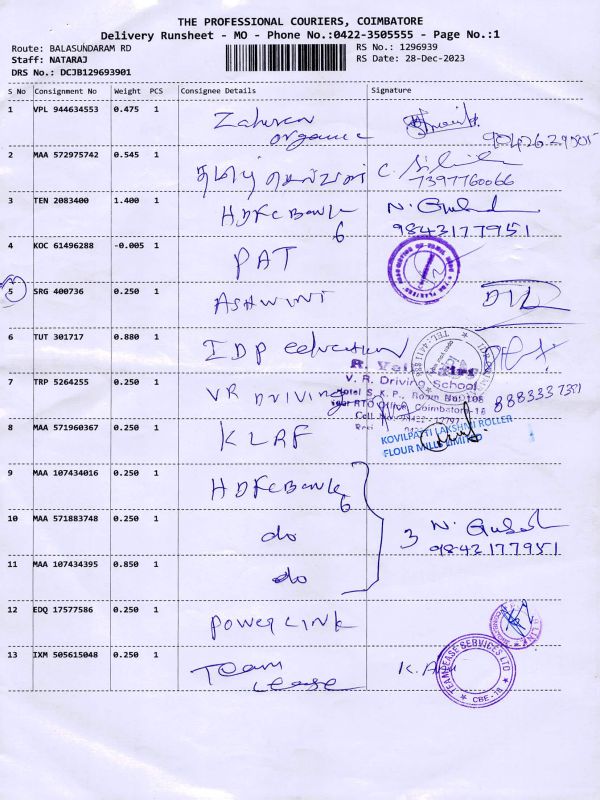 THE PROFESSIONAL COURIERS, COIMBATORE
Delivery Runsheet - MO - Phone No.:0422-3505555 - Page No.:1
Route: BALASUNDARAM RD
RS No.: 1296939
Staff: NATARAJ
RS Date: 28-Dec-2023
DRS No.: DCJB129693901
S No Consignment No Weight PCS Consignee Details Signature
1 VPL 944634553 0.475 1 organic
2 MAA 572975742 0.545 1 C.
7397760066
3 TEN 2083400 1.400 1 HDFC Bank N.
6 9843177951
4 KOC 61496288 -0.005 1 PAT
5 SRG 400736 0.250 1 ASHWINI
6 TUT 301717 0.880 1 IDP education
7 TRP 5264255 0.250 1 VR DRIVING
V. R. Driving School
Hotel S. K. P., Room No: 105
RTO Office, Coimbatore-18
8 MAA 571960367 0.250 1 KLRF
KOVILPATTI LAKSHMI ROLLER
FLOUR MILLS LIMITED
9 MAA 107434016 0.250 1 HDFC Bank
6
10 MAA 571883748 0.250 1 do 3 N.
9843177951
11 MAA 107434395 0.850 1 do
12 EDQ 17577586 0.250 1 POWER LINK
13 IXM 505615048 0.250 1 Team K.
Lease
TEAMLEASE SERVICES LTD
CBE-18